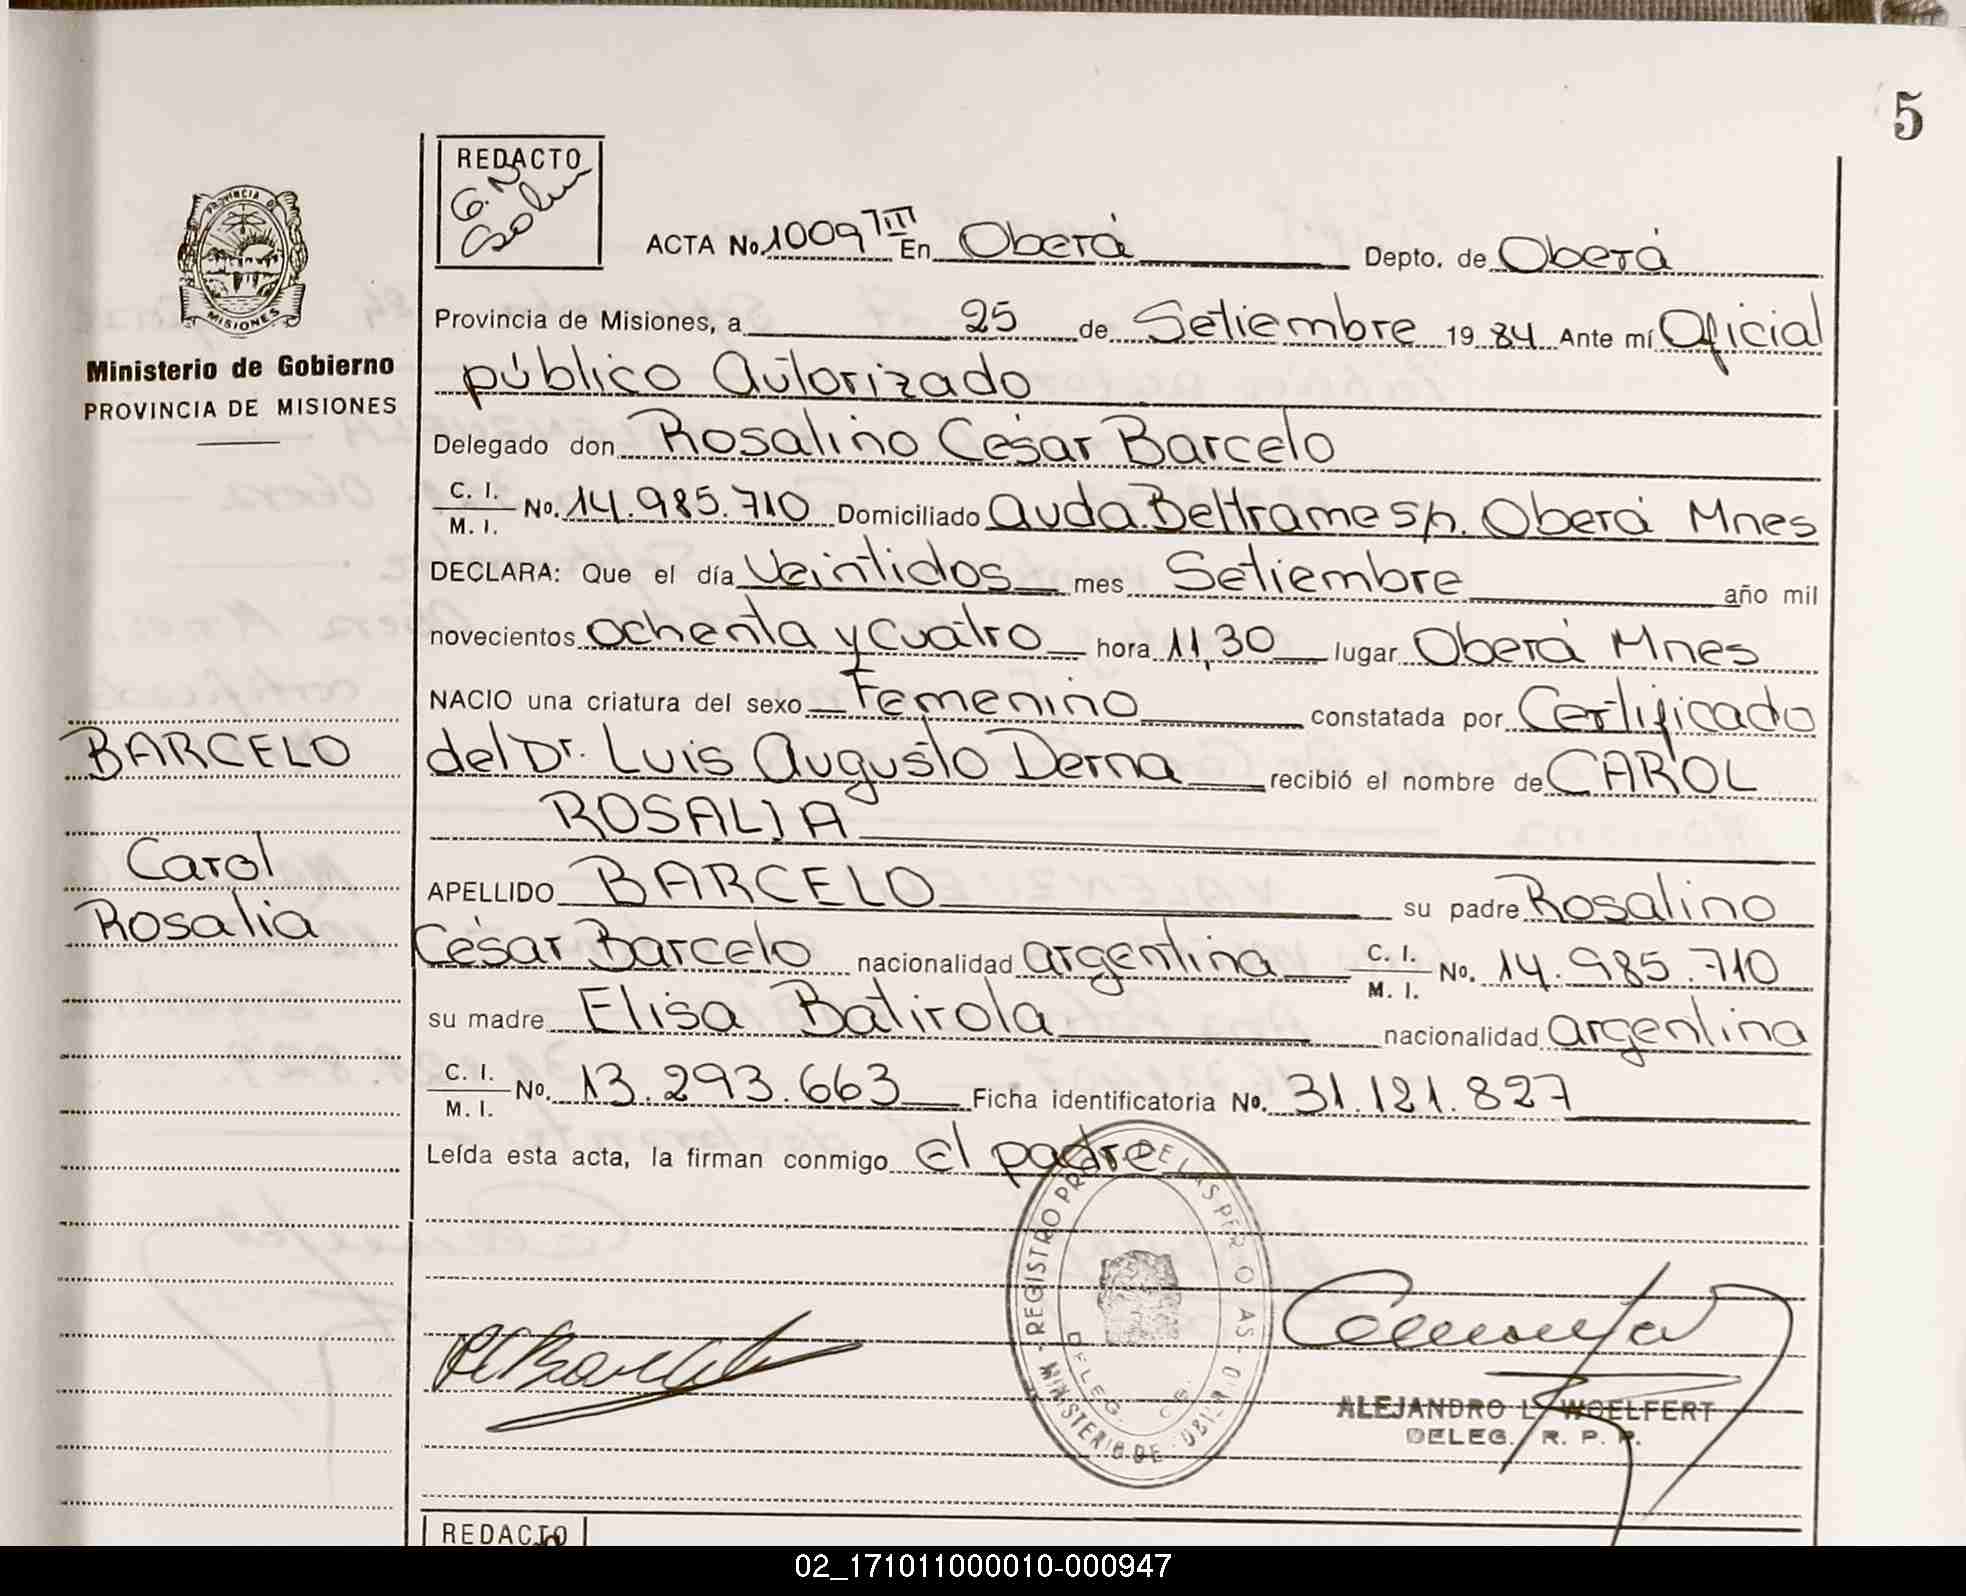 5
REDACTO
G.N
PROVINCIA DE
MISIONES
ACTA No. 1009 TIII En Oberá Depto. de Oberá
Provincia de Misiones, a 25 de Setiembre 19 84 Ante mí Oficial
Ministerio de Gobierno
PROVINCIA DE MISIONES
público Autorizado
Delegado don Rosalino César Barcelo
C. I. / M. I. No. 14.985.710 Domiciliado Avda. Beltrame s/n. Oberá Mnes
DECLARA: Que el día Veintidos mes Setiembre año mil
novecientos ochenta y cuatro hora 11,30 lugar Oberá Mnes
NACIO una criatura del sexo Femenino constatada por Certificado
BARCELO
del Dr. Luis Augusto Derna recibió el nombre de CAROL
ROSALIA
Carol
Rosalia
APELLIDO BARCELO su padre Rosalino
César Barcelo nacionalidad argentina C. I. / M. I. No. 14.985.710
su madre Elisa Batirola nacionalidad argentina
C. I. / M. I. No. 13.293.663 Ficha identificatoria No. 31.121.827
Leída esta acta, la firman conmigo el padre
REGISTRO PROV. DE LAS PERSONAS
MINISTERIO DE GOBIERNO
DELEG.
ALEJANDRO L. WOELFERT
DELEG. R. P. P.
REDACTO
02_171011000010-000947